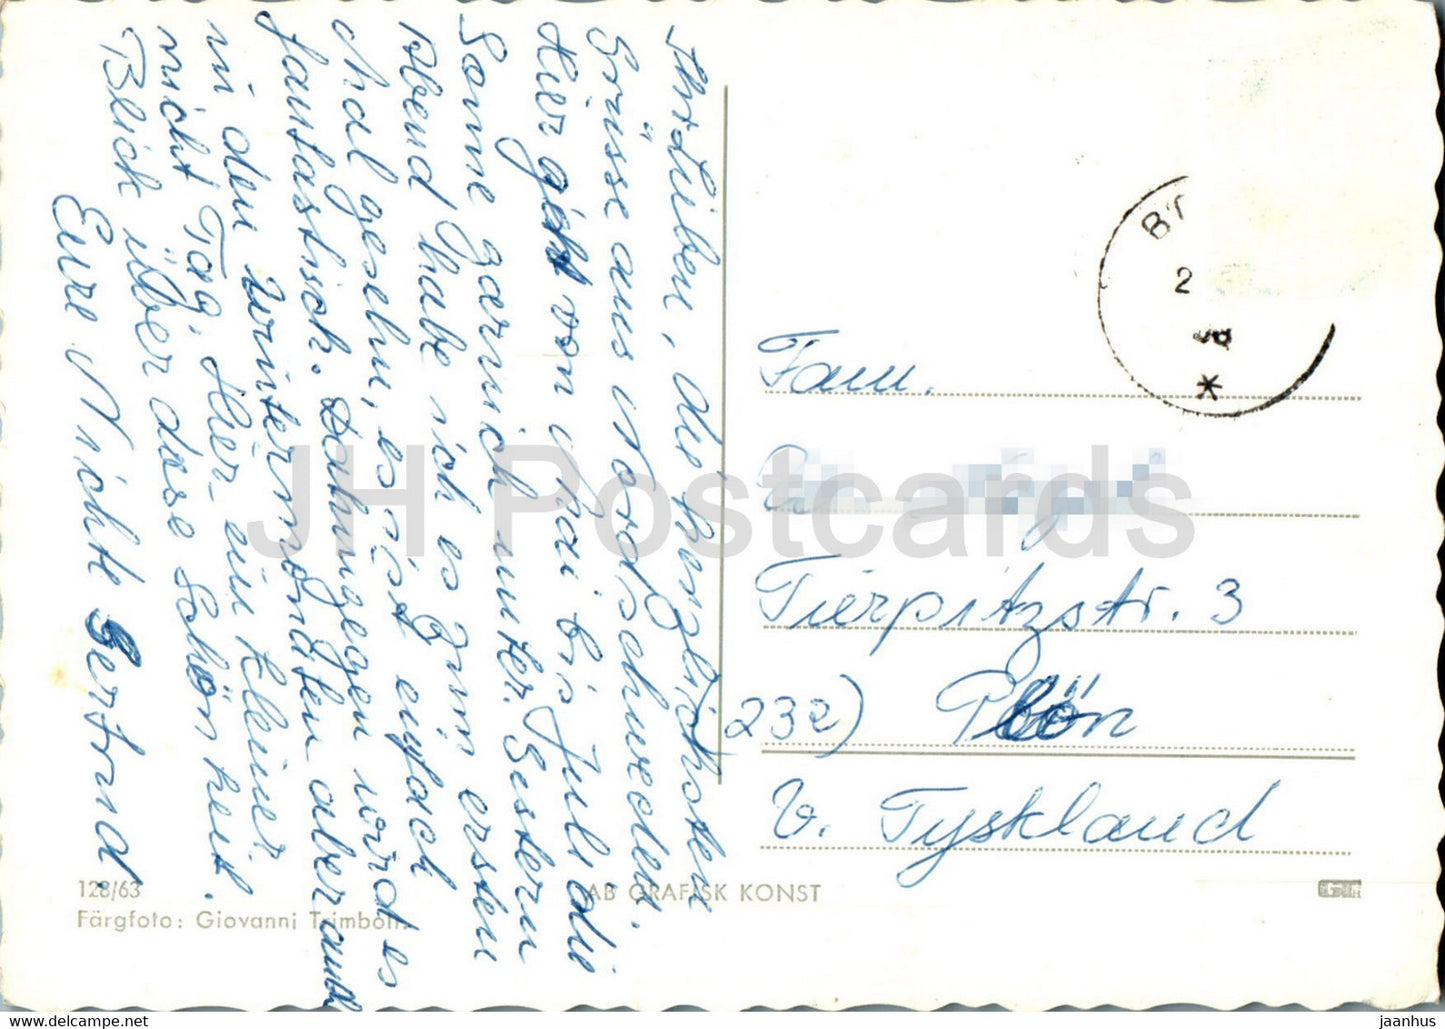 Ihr Lieben, die herzlichsten
Grüsse aus Nordschweden.
Hier geht von Mai bis Juli die
Sonne garnich unter. Gestern
Abend habe ich es zum ersten
Mal gesehn, es ist einfach
fantastisch. Dahingegen wird es
in den Wintermonaten aber auch
nicht Tag. Hier ein kleiner
Blick über dase Schönheit.
Eure Nichte Gertrud.
B
2
*
Fam.
Tierpitzstr. 3
232) Plön
V. Tyskland
128/63
Färgfoto: Giovanni Trimboli
AB GRAFISK KONST
JH Postcards
jaanhus @ delcampe.net